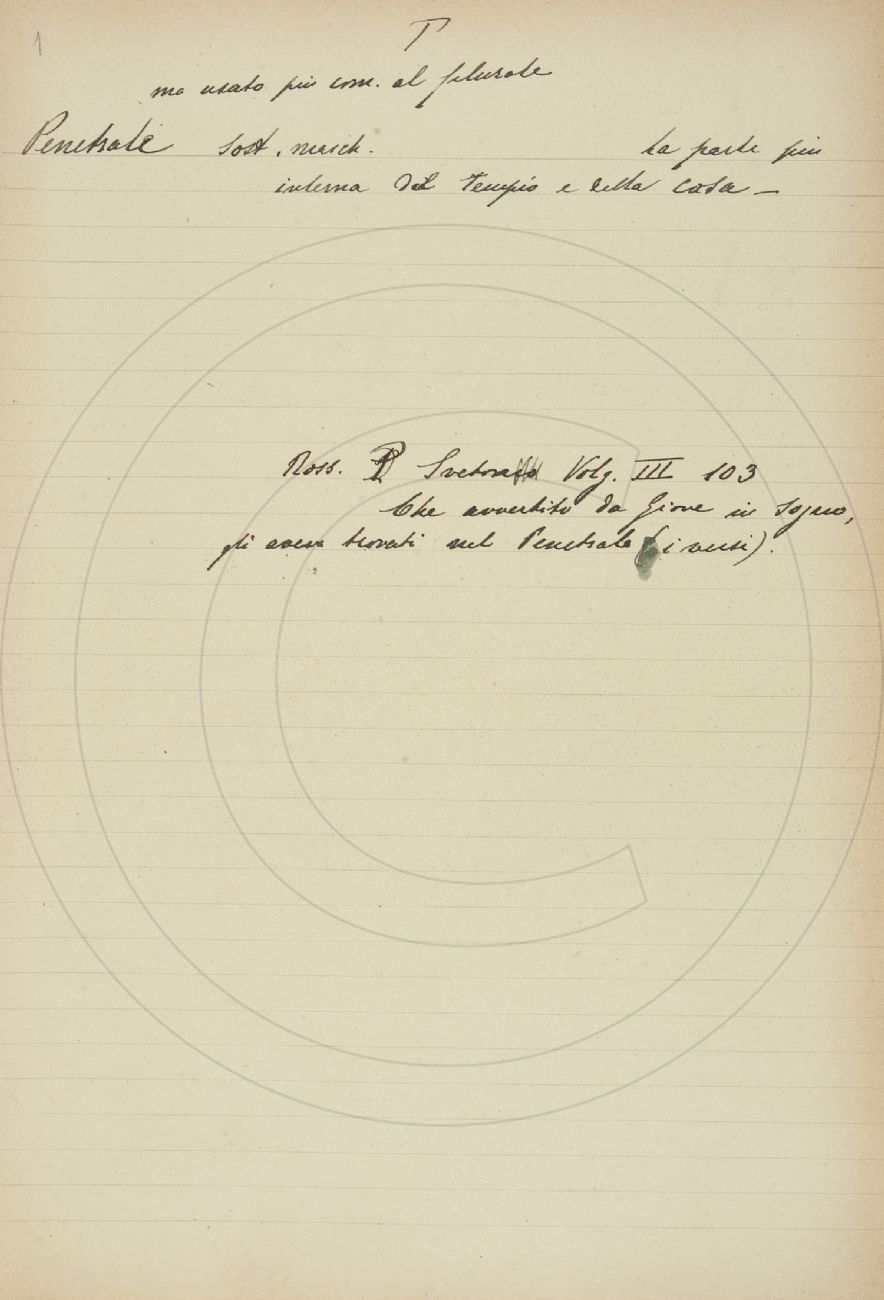 1
T
ma usato più com. al plurale
Penetrale Sost. masch. La parte più
interna del Tempio e della casa —
Ross. P Sveton Volg. III 103
Che avvertito da Giove in sogno,
gli aveva trovati nel Penetrale (i versi).